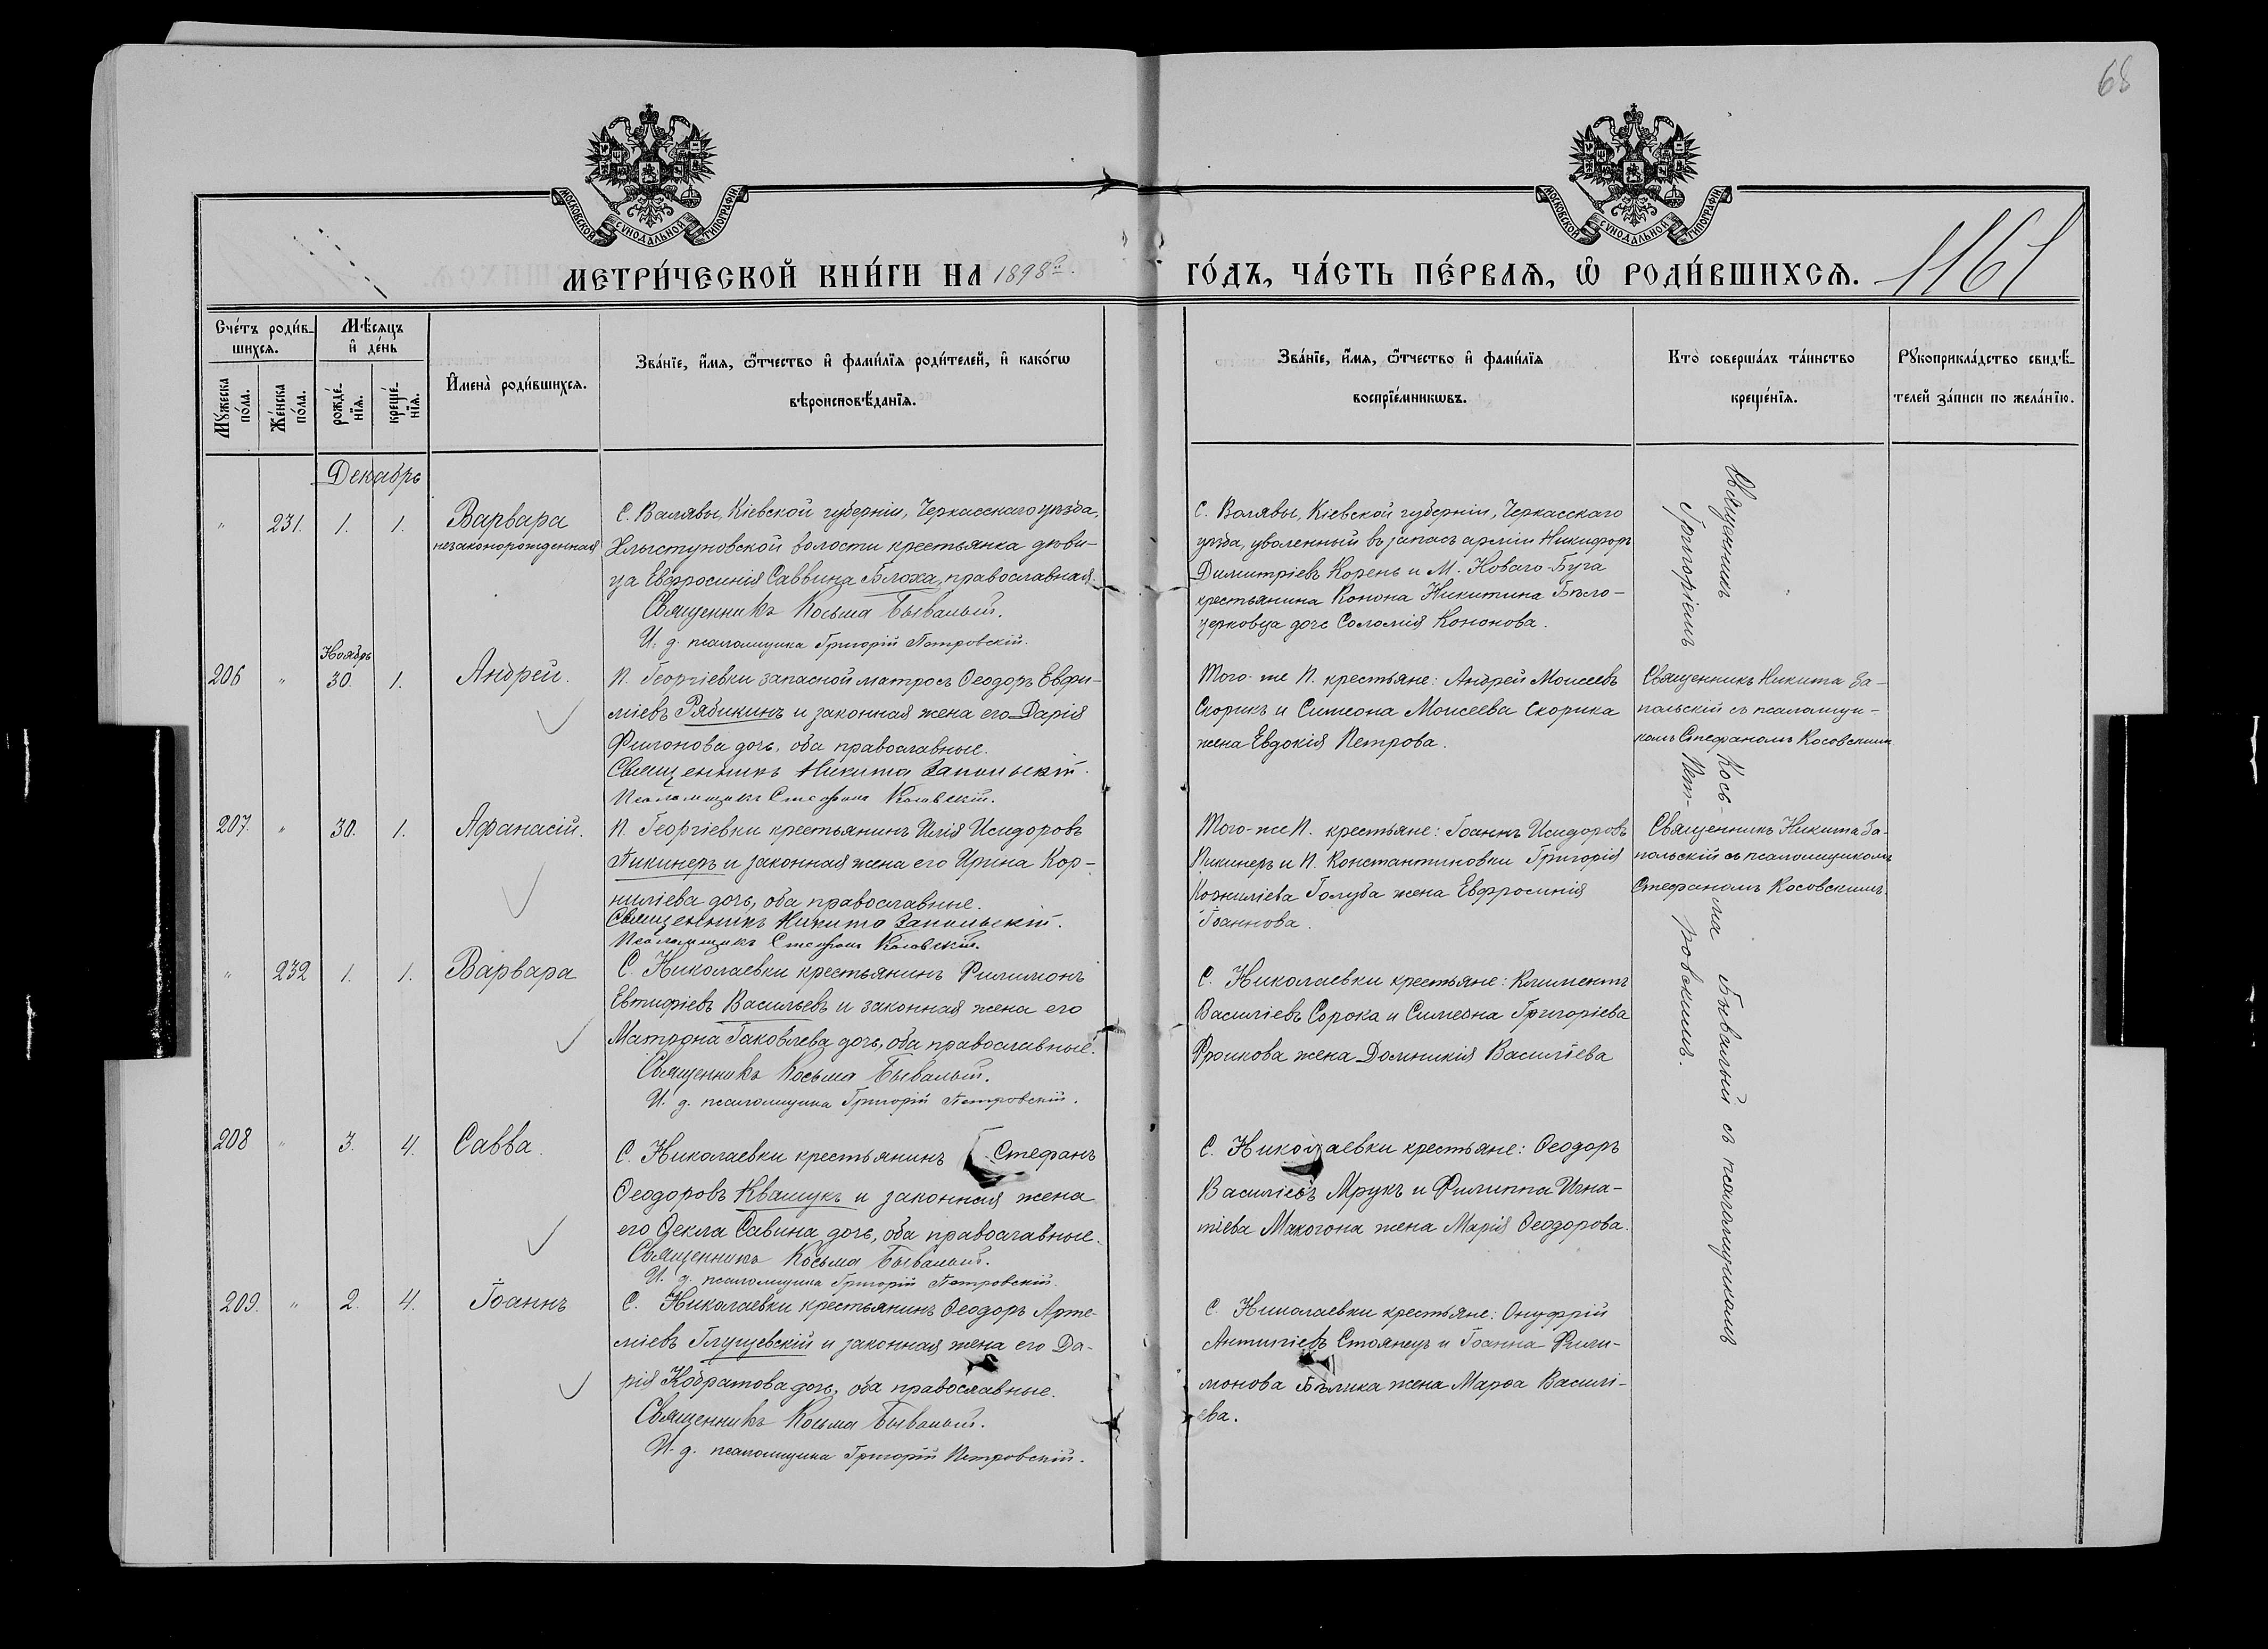 68
МОСКОВСКОЙ СѴНОДАЛЬНОЙ ТИПОГРАФІИ
МОСКОВСКОЙ СѴНОДАЛЬНОЙ ТИПОГРАФІИ
МЕТРИ́ЧЕСКОЙ КНИ́ГИ НА 1898 г.
ГО́ДЪ, ЧА́СТЬ ПЕ́РВАѦ, Ѽ РОДИ́ВШИХСѦ.
1161
Сче́тъ роди́в-
шихсѧ.
Мѣ́сѧцъ
и҆ де́нь
Мꙋ́жеска
по́ла.
Же́нска
по́ла.
рожде́-
нїѧ.
креще́-
нїѧ.
И҆мена̀ роди́вшихсѧ.
Зва́нїе, и҆́мѧ, ѻ҆́тчество и҆ фами́лїѧ роди́телей, и҆ како́гѡ
вѣроисповѣ́данїѧ.
Зва́нїе, и҆́мѧ, ѻ҆́тчество и҆ фами́лїѧ
воспрїе́мникѡвъ.
Кто̀ соверша́лъ та́инство
креще́нїѧ.
Рꙋкоприкла́дство свидѣ́-
телей за́писи по жела́нїю.
Декабрь
" 231. 1. 1.
Варвара
незаконорожденная
С. Валявы, Кіевской губерніи, Черкасскаго уѣзда,
Хлыстуновской волости крестьянка дѣви-
ца Евфросинія Саввина Блоха, православная.
Священникъ Косьма Бывалый.
И. д. псаломщика Григорій Петровскій.
С. Валявы, Кіевской губерніи, Черкасскаго
уѣзда, уволенный въ запасъ арміи Никифоръ
Димитріевъ Корень и М. Новаго-Буга
крестьянина Конона Никитина Бѣло-
церковца дочь Соломія Кононова.
Священникъ Косьма Бывалый съ псаломщикомъ
Григоріемъ Петровскимъ.
Ноябрь
206 " 30. 1.
Андрей.
П. Георгіевки запасной матросъ Ѳеодоръ Евфи-
міевъ Рябикинъ и законная жена его Дарія
Филонова дочь, оба православные.
Священникъ Никита Запольскій.
Псаломщикъ Стефанъ Косовскій.
Того-же П. крестьяне: Андрей Моисеевъ
Скорикъ и Симеона Моисеева Скорика
жена Евдокія Петрова.
Священникъ Никита За-
польскій съ псаломщи-
комъ Стефаномъ Косовскимъ
207. " 30. 1.
Афанасій.
П. Георгіевки крестьянинъ Илія Исидоровъ
Пикинеръ и законная жена его Ирина Кор-
ниліева дочь, оба православные.
Священникъ Никита Запольскій.
Псаломщикъ Стефанъ Косовскій.
Того-же П. крестьяне: Іоаннъ Исидоровъ
Пикинеръ и П. Константиновки Григорія
Корниліева Голуба жена Евфросинія
Іоаннова.
Священникъ Никита За-
польскій съ псаломщикомъ
Стефаномъ Косовскимъ.
" 232 1. 1.
Варвара
С. Николаевки крестьянинъ Филимонъ
Евтифіевъ Васильевъ и законная жена его
Матрона Іаковлева дочь, оба православные.
Священникъ Косьма Бывалый.
И. д. псаломщика Григорій Петровскій.
С. Николаевки крестьяне: Климентъ
Василіевъ Сорока и Симеона Григоріева
Фроикова жена Домникія Василіева
208 " 3. 4.
Савва.
С. Николаевки крестьянинъ Стефанъ
Ѳеодоровъ Квашукъ и законная жена
его Ѳекла Савина дочь, оба православные.
Священникъ Косьма Бывалый.
И. д. псаломщика Григорій Петровскій.
С. Николаевки крестьяне: Ѳеодоръ
Василіевъ Мрукъ и Филиппа Игна-
тіева Макогона жена Марія Ѳеодорова.
209. " 2. 4.
Іоаннъ
С. Николаевки крестьянинъ Ѳеодоръ Арте-
міевъ Глущевскій и законная жена его Да-
рія Кодратова дочь, оба православные.
Священникъ Косьма Бывалый.
И. д. псаломщика Григорій Петровскій.
С. Николаевки крестьяне: Онуфрій
Антипіевъ Стоянецъ и Іоанна Фили-
монова Бѣлика жена Марѳа Василі-
ева.